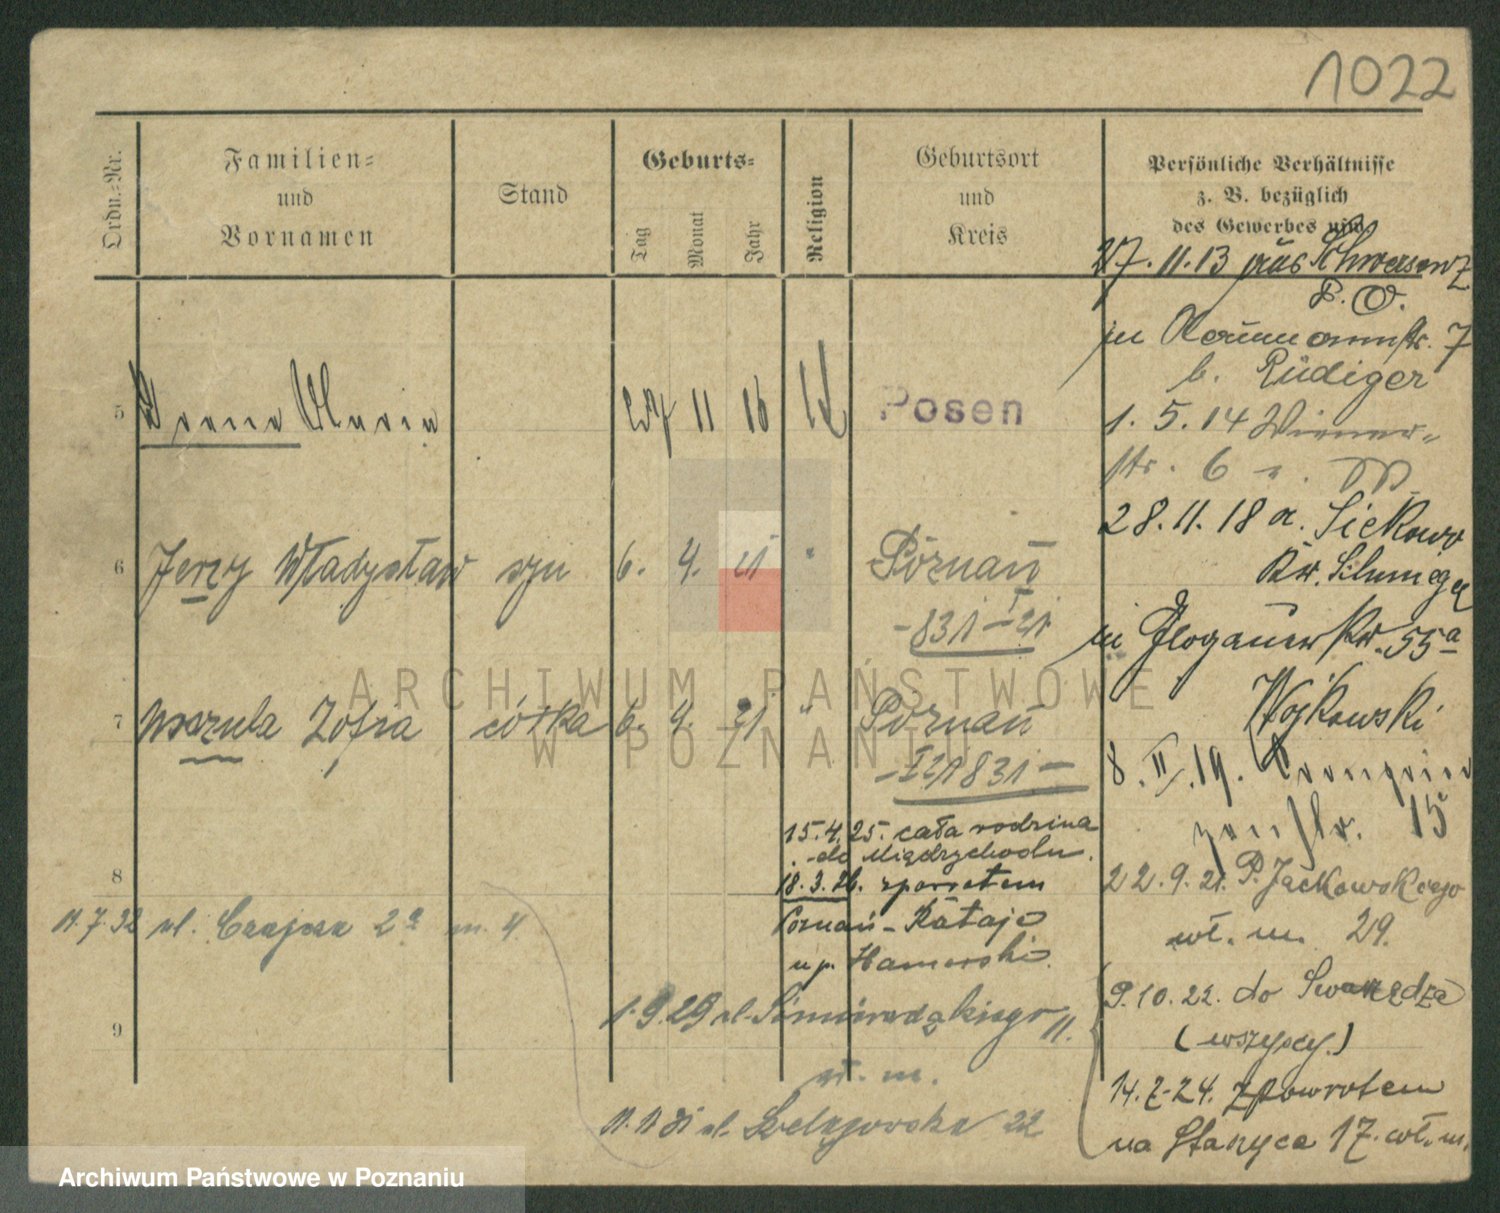 1022
Ordn.-Nr.
Familien-
und
Vornamen
Stand
Geburts-
Tag
Monat
Jahr
Religion
Geburtsort
und
Kreis
Persönliche Verhältnisse
z. B. bezüglich
des Gewerbes usw.
27.11.13 aus Schwersenz
P. O.
in 7
b. Rüdiger
1. 5. 14 Wiener-
str. 6
28.11.18 a.
Kr.
in Glogauer Str. 55a
Wojkowski
8. II. 19.
str. 15
22.9.21. P. Jackowskiego
wł. m. 29.
9.10.22. do Swarzędza
(wszyscy)
14.7.24. z powrotem
na 17. wł. m.
5 Irene Maria 27 11 16 Posen
6 Jerzy Władysław syn 6. 4. 21 " Poznań
- 831 - I 21
7 Urszula Zofia córka 6. 4. 21 " Poznań
831 -
15.4.25. cała rodzina
do Międzychodu.
8
18.3.26. z powrotem
11.7.32 ul. 2a m. 4
Poznań - Rataje
u p. Hamerski
9
1.9.29 ul. Siemiradzkiego 11.
wł. m.
11.1.31 ul. 22
ARCHIWUM PAŃSTWOWE
W POZNANIU
Archiwum Państwowe w Poznaniu